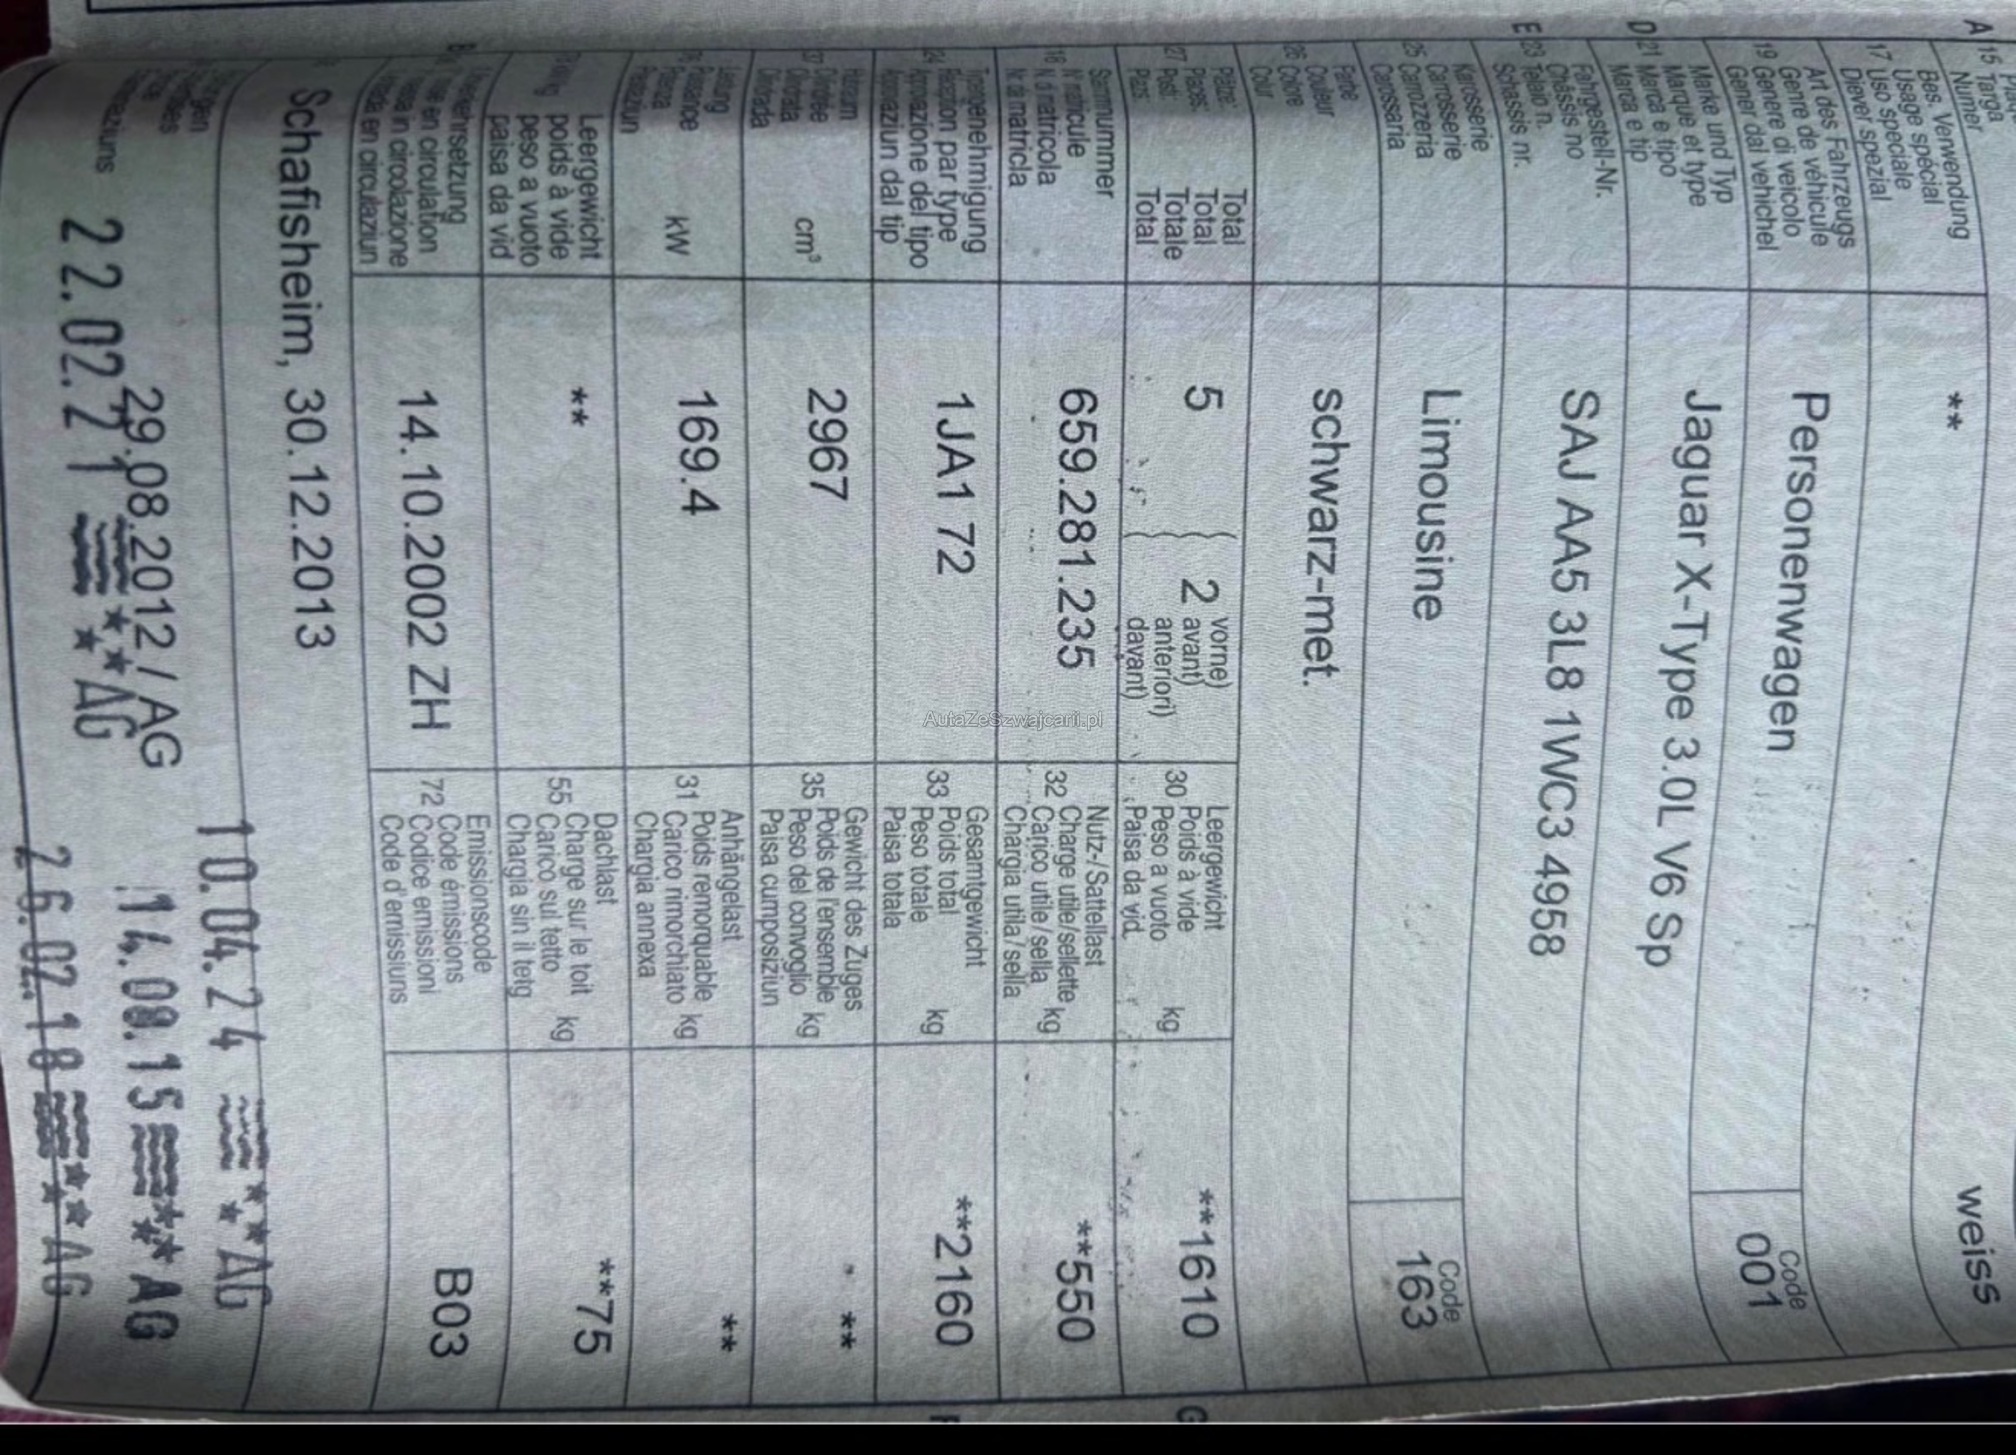 A 15 Targa
Numer
weiss
Bes. Verwendung
Usage spécial
17 Uso speciale
Diever spezial
**
Art des Fahrzeugs
Genre de véhicule
19 Genere di veicolo
Gener dal vehichel
Personenwagen
Code
001
Marke und Typ
Marque et type
D 21 Marca e tipo
Marca e tip
Jaguar X-Type 3.0L V6 Sp
Fahrgestell-Nr.
Châssis no
E 23 Telaio n.
Schassis nr.
SAJ AA5 3L8 1WC3 4958
Karosserie
Carrosserie
25 Carrozzeria
Carossaria
Limousine
Code
163
Farbe
Couleur
26 Colore
Colur
schwarz-met.
Plätze: Total
Places: Total
27 Posti: Totale
Plazs: Total
5
2
vorne)
avant)
anteriori)
davant)
Leergewicht
Poids à vide
30 Peso a vuoto kg
Paisa da vid
**1610
G
Stammnummer
N° matricule
18 N. di matricola
Nr. da matricla
659.281.235
Nutz-/Sattellast
Charge utile/sellette
32 Carico utile/sella kg
Chargia utila/sella
**550
Typengenehmigung
Réception par type
24 Approvazione del tipo
Approvaziun dal tip
1JA1 72
Gesamtgewicht
Poids total
33 Peso totale kg
Paisa totala
**2160
F
Hubraum
Cylindrée
37 Cilindrata cm³
2967
Gewicht des Zuges
Poids de l'ensemble
35 Peso del convoglio kg
Paisa cumposiziun
**
Leistung
Puissance
Potenza kW
Prestaziun
169.4
Anhängelast
Poids remorquable
31 Carico rimorchiato kg
Chargia annexa
**
Leergewicht
poids à vide
peso a vuoto
paisa da vid
**
Dachlast
Charge sur le toit
55 Carico sul tetto kg
Chargia sin il tetg
**75
Inverkehrsetzung
en circulation
in circolazione
en circulaziun
14.10.2002 ZH
Emissionscode
Code émissions
72 Codice emissioni
Code d'emissiuns
B03
Schafisheim, 30.12.2013
10.04.24 ** AG
29.08.2012 / AG
14.08.15 ** AG
22.02.21 ** AG
26.02.18 ** AG
AutaZeSzwajcarii.pl